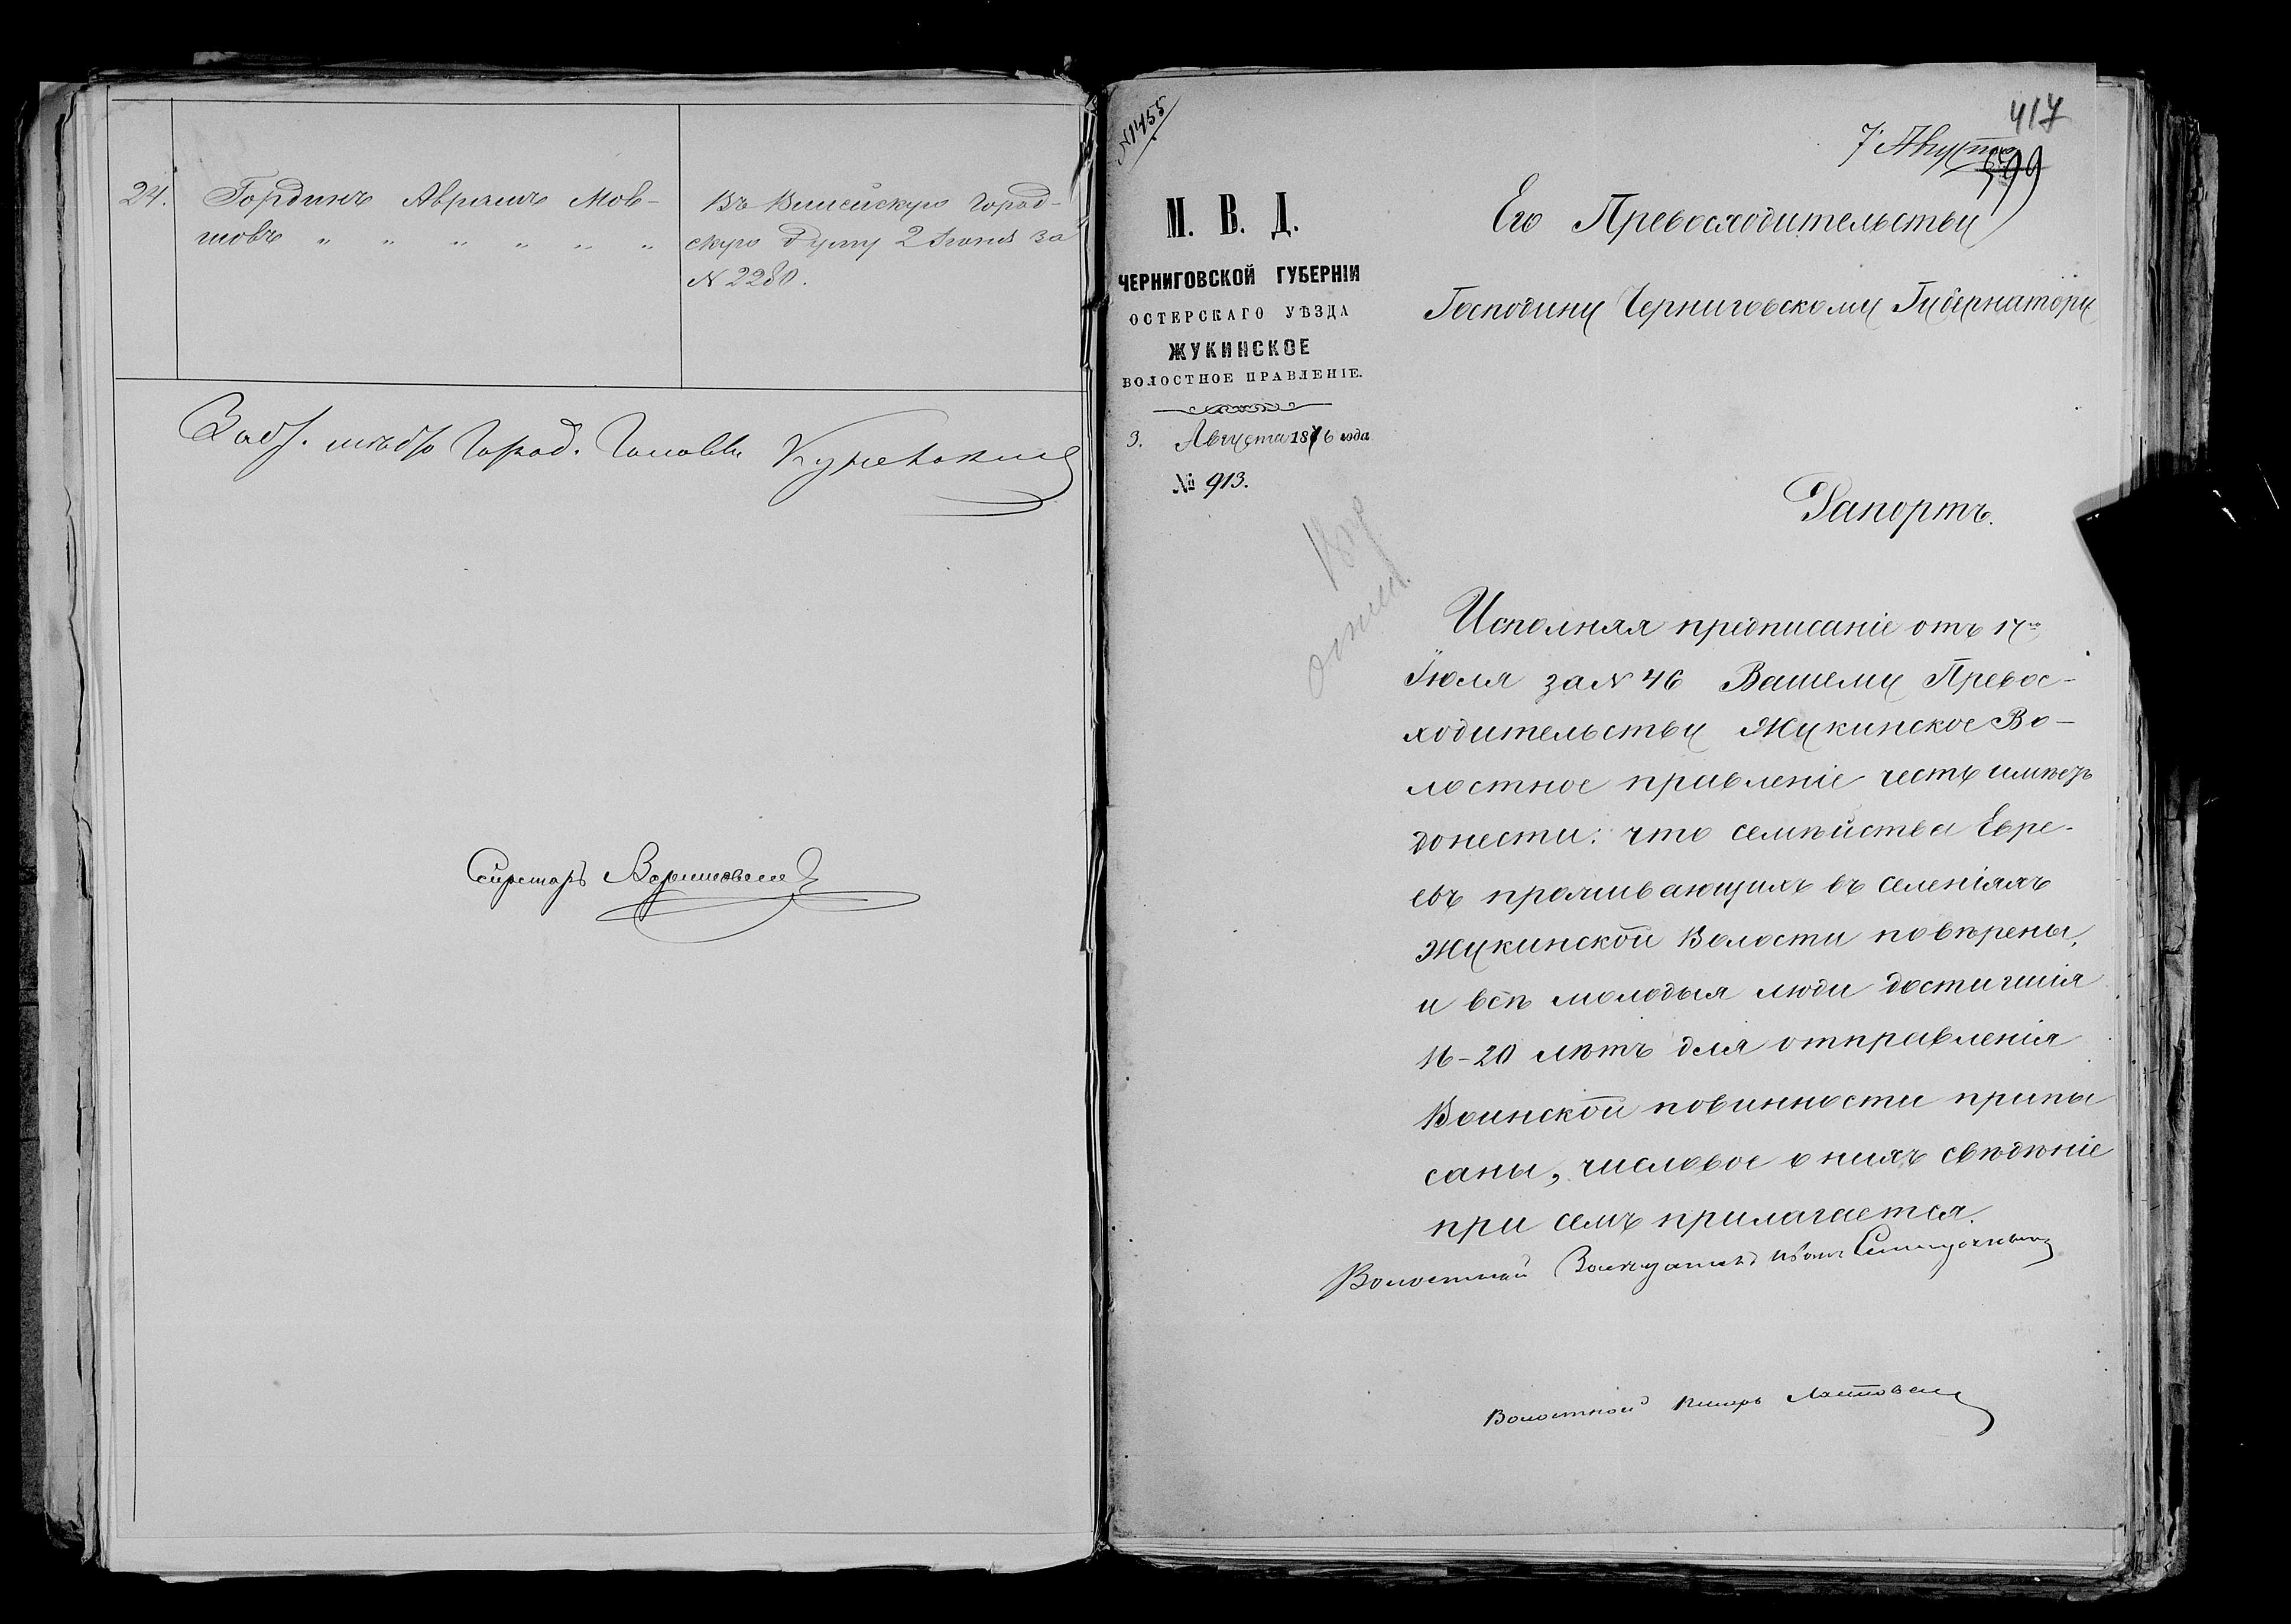 24.
Гординъ Абрамъ Мов-
шовъ " " " " " "
Въ Город-
скую Думу 2 Іюня за
N 2280.
Город. Головы
Секретарь
N 1455
417
7 Августа
599
М. В. Д.
ЧЕРНИГОВСКОЙ ГУБЕРНІИ
ОСТЕРСКАГО УѢЗДА
ЖУКИНСКОЕ
ВОЛОСТНОЕ ПРАВЛЕНІЕ.
3. Августа 1876 года
№ 913.
Его Превосходительству
Господину Черниговскому Губернатору
Рапортъ.
Исполняя предписаніе отъ 17го
Іюля за N 46 Вашему Превос-
ходительству Жукинское Во-
лостное правленіе честь имѣетъ
донести: что семѣйства Евре-
евъ проживающихъ въ селеніяхъ
Жукинской Волости повѣрены,
и всѣ молодыя люди достигшія
16-20 лѣтъ для отправленія
Воинской повинности припи
саны, числовое о нихъ свѣдѣніе
при семъ прилагается.
Волостной Иванъ
Волостной Писарь